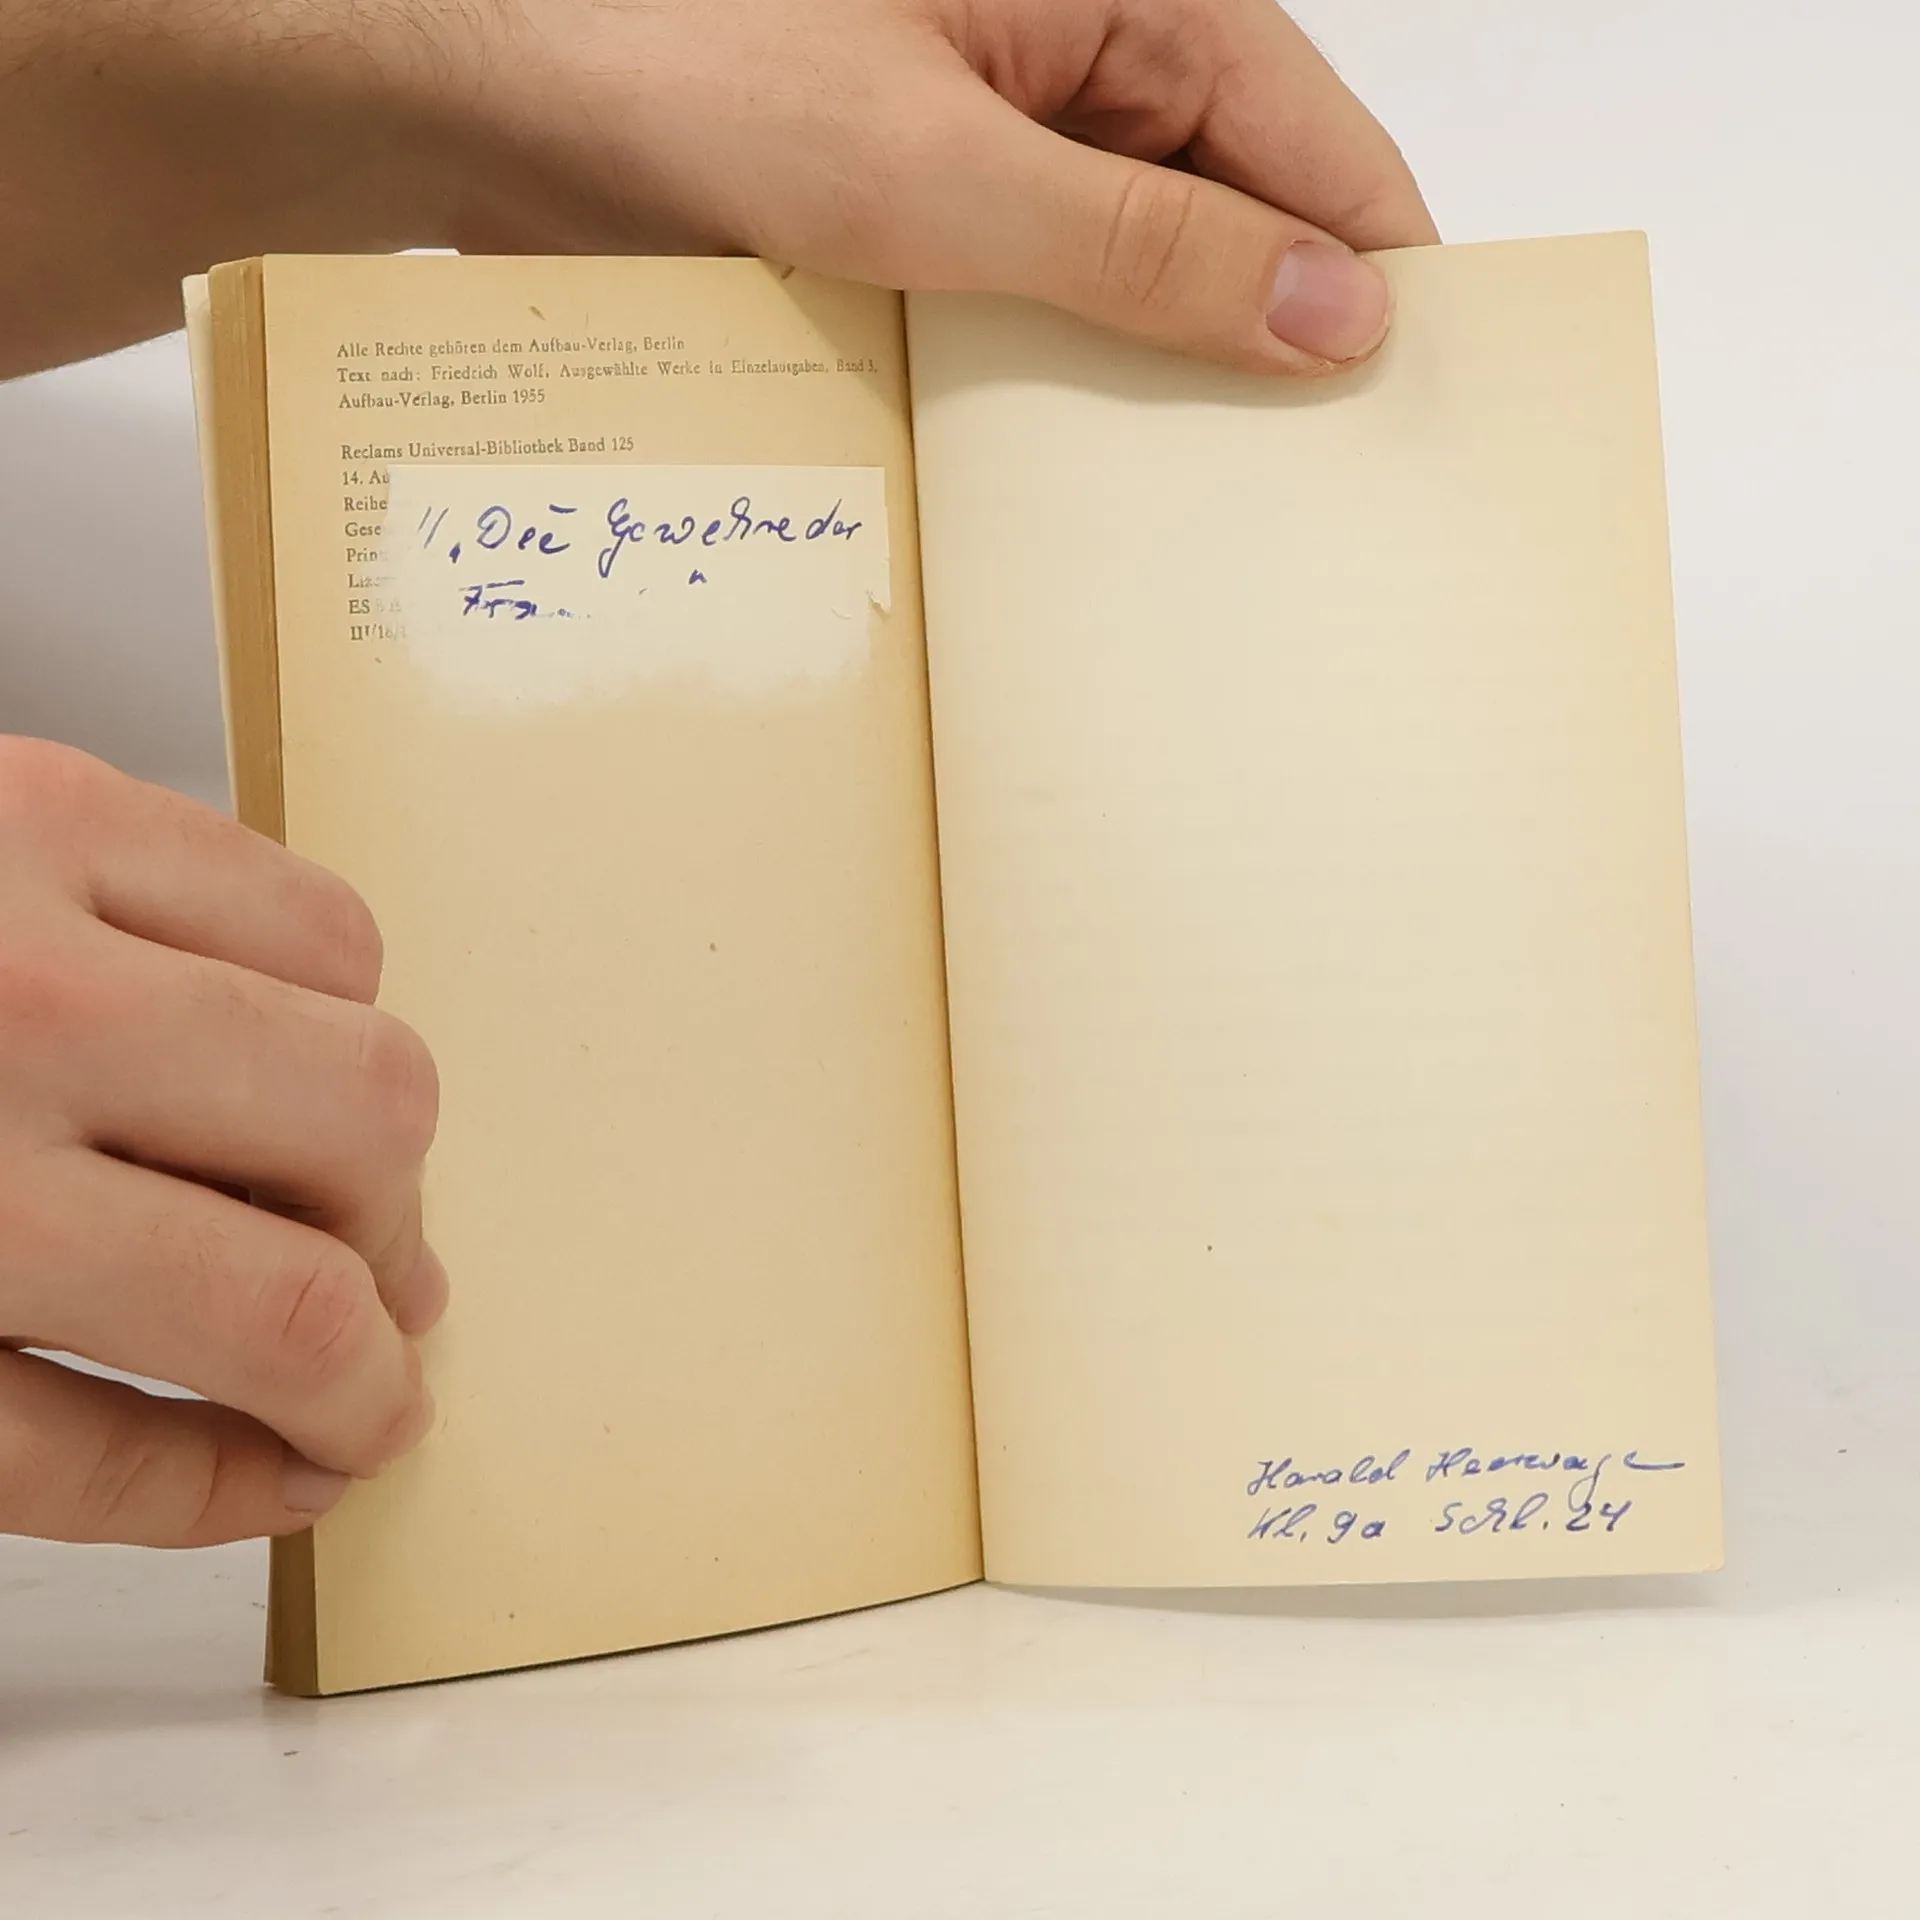 Alle Rechte gehören dem Aufbau-Verlag, Berlin
Text nach: Friedrich Wolf, Ausgewählte Werke in Einzelausgaben, Band 3,
Aufbau-Verlag, Berlin 1955
Reclams Universal-Bibliothek Band 125
14. Au
Reihe
Gese
Prin
Liz
ES
III/18/
"Die Gewehre der
Harald Heerwage
Kl. 9a Schl. 24